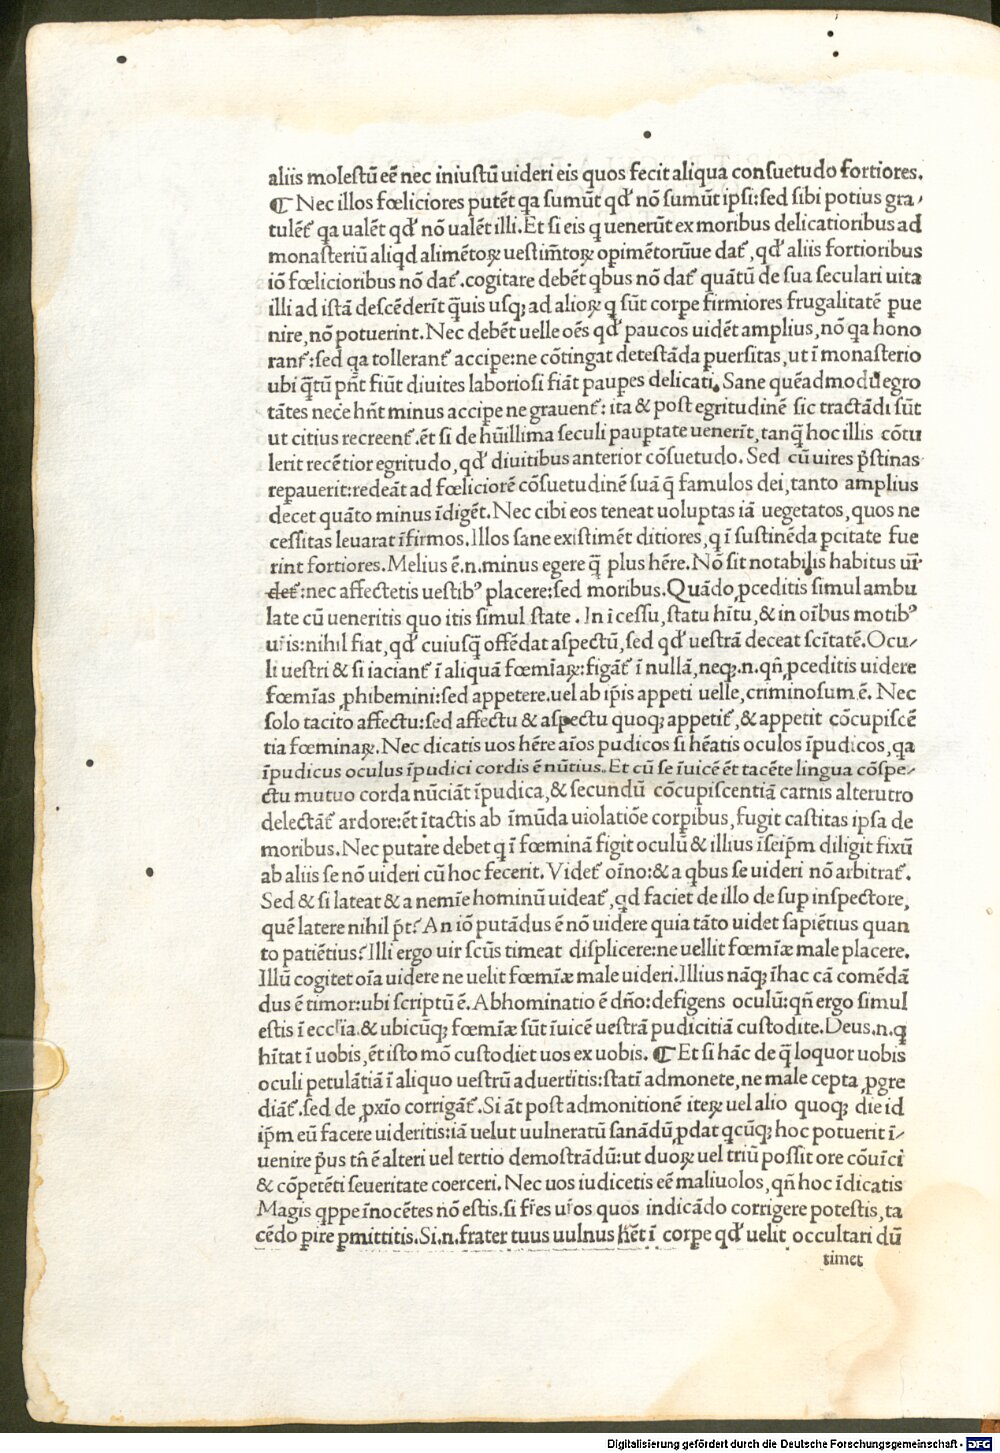 aliis molestū eē nec iniustū uideri eis quos fecit aliqua consuetudo fortiores.
¶ Nec illos fœliciores putēt qa sumūt qđ nō sumūt ipsi:sed sibi potius gra-
tulēt᷑ qa ualēt qđ nō ualēt illi.Et si eis q uenerūt ex moribus delicatioribus ad
monasteriū aliqd alimētoꝝ uestim̄toꝝ opimētorūue dat᷑, qđ aliis fortioribus
iō fœlicioribus nō dat᷑.cogitare debēt qbus nō dat᷑ quātū de sua seculari uita
illi ad istā descēderīt q̄uis usqꝫ ad alioꝝ q sūt corpe firmiores frugalitatē pue
nire,nō potuerint.Nec debēt uelle oēs qđ paucos uidēt amplius,nō qa hono
rant᷑:sed qa tollerant᷑ accipe:ne cōtingat detestāda puersitas,ut ī monasterio
ubi q̄tū pn̄t fiūt diuites laboriosi fiāt paupes delicati. Sane quēadmodū egro
tātes nece hn̄t minus accipe ne grauent᷑: ita & post egritudinē sic tractādi sūt
ut citius recreent᷑.ēt si de hūillima seculi pauptate uenerīt,tanq̄ hoc illis cōtu
lerit recētior egritudo,qđ diuitibus anterior cōsuetudo. Sed cū uires p̄stinas
repauerit:redeāt ad fœliciorē cōsuetudinē suā q̄ famulos dei,tanto amplius
decet quāto minus īdigēt.Nec cibi eos teneat uoluptas iā uegetatos,quos ne
cessitas leuarat īfirmos.Illos sane existimēt ditiores,q ī sustinēda pcitate fue
rint fortiores.Melius ē.n.minus egere q̄ plus hēre.Nō sit notabilis habitus ur̄
det᷑:nec affectetis uestibꝰ placere:sed moribus.Quādo ꝓceditis simul ambu
late cū ueneritis quo itis simul state . In īcessu,statu hītu,& in oībus motibꝰ
ur̄is:nihil fiat,qđ cuiusq̄ offēdat aspectū,sed qđ uestrā deceat scītatē.Ocu-
li uestri & si iaciant᷑ ī aliquā fœmīaꝝ:figāt᷑ ī nullā,neqꝫ.n.qn̄ ꝓceditis uidere
fœmīas ꝓhibemini:sed appetere.uel ab ip̄is appeti uelle,criminosum ē. Nec
solo tacito affectu:sed affectu & aspectu quoqꝫ appetit᷑,& appetit cōcupiscē
tia fœminaꝝ.Nec dicatis uos hēre aīos pudicos si hēatis oculos īpudicos,qa
īpudicus oculus īpudici cordis ē nūtius.Et cū se īuicē ēt tacēte lingua cōspe-
ctu mutuo corda nūciāt īpudica,& secundū cōcupiscentiā carnis alterutro
delectāt᷑ ardore:ēt ītactis ab īmūda uiolatiōe corpibus,fugit castitas ipsa de
moribus.Nec putare debet q ī fœminā figit oculū & illius īseip̄m diligit fixū
ab aliis se nō uideri cū hoc fecerit.Videt᷑ oīno:& a qbus se uideri nō arbitrat᷑.
Sed & si lateat & a nemīe hominū uideat᷑,qd faciet de illo de sup inspectore,
quē latere nihil p̄t?An iō putādus ē nō uidere quia tāto uidet sapiētius quan
to patiētius?Illi ergo uir scūs timeat displicere:ne uellit fœmīæ male placere.
Illū cogitet oīa uidere ne uelit fœmīæ male uideri.Illius nāqꝫ īhac cā comēdā
dus ē timor:ubi scriptū ē.Abhominatio ē dn̄o:defigens oculū:qn̄ ergo simul
estis ī eccl̄ia.& ubicūqꝫ fœmīæ sūt īuicē uestrā pudicitiā custodite.Deus.n.q
hītat ī uobis,ēt isto mō custodiet uos ex uobis. ¶ Et si hāc de q̄ loquor uobis
oculi petulātiā ī aliquo uestrū aduertītis:statī admonete,ne male cepta ꝓgre
diāt᷑.sed de ꝓxīo corrigāt᷑.Si āt post admonitionē iteꝝ uel alio quoqꝫ die id
ip̄m eū facere uideritis:iā uelut uulneratū sanādū ꝓdat qcūqꝫ hoc potuerit ī-
uenire p̄us tn̄ ē alteri uel tertio demostrādū:ut duoꝝ uel triū possit ore cōuīci
& cōpetēti seueritate coerceri. Nec uos iudicetis eē maliuolos,qn̄ hoc īdicatis
Magis qppe īnocētes nō estis.si fr̄es ur̄os quos indicādo corrigere potestis,ta
cēdo pire pmittitis.Si.n.frater tuus uulnus hēt ī corpe qđ uelit occultari dū
timet
Digitalisierung gefördert durch die Deutsche Forschungsgemeinschaft - DFG